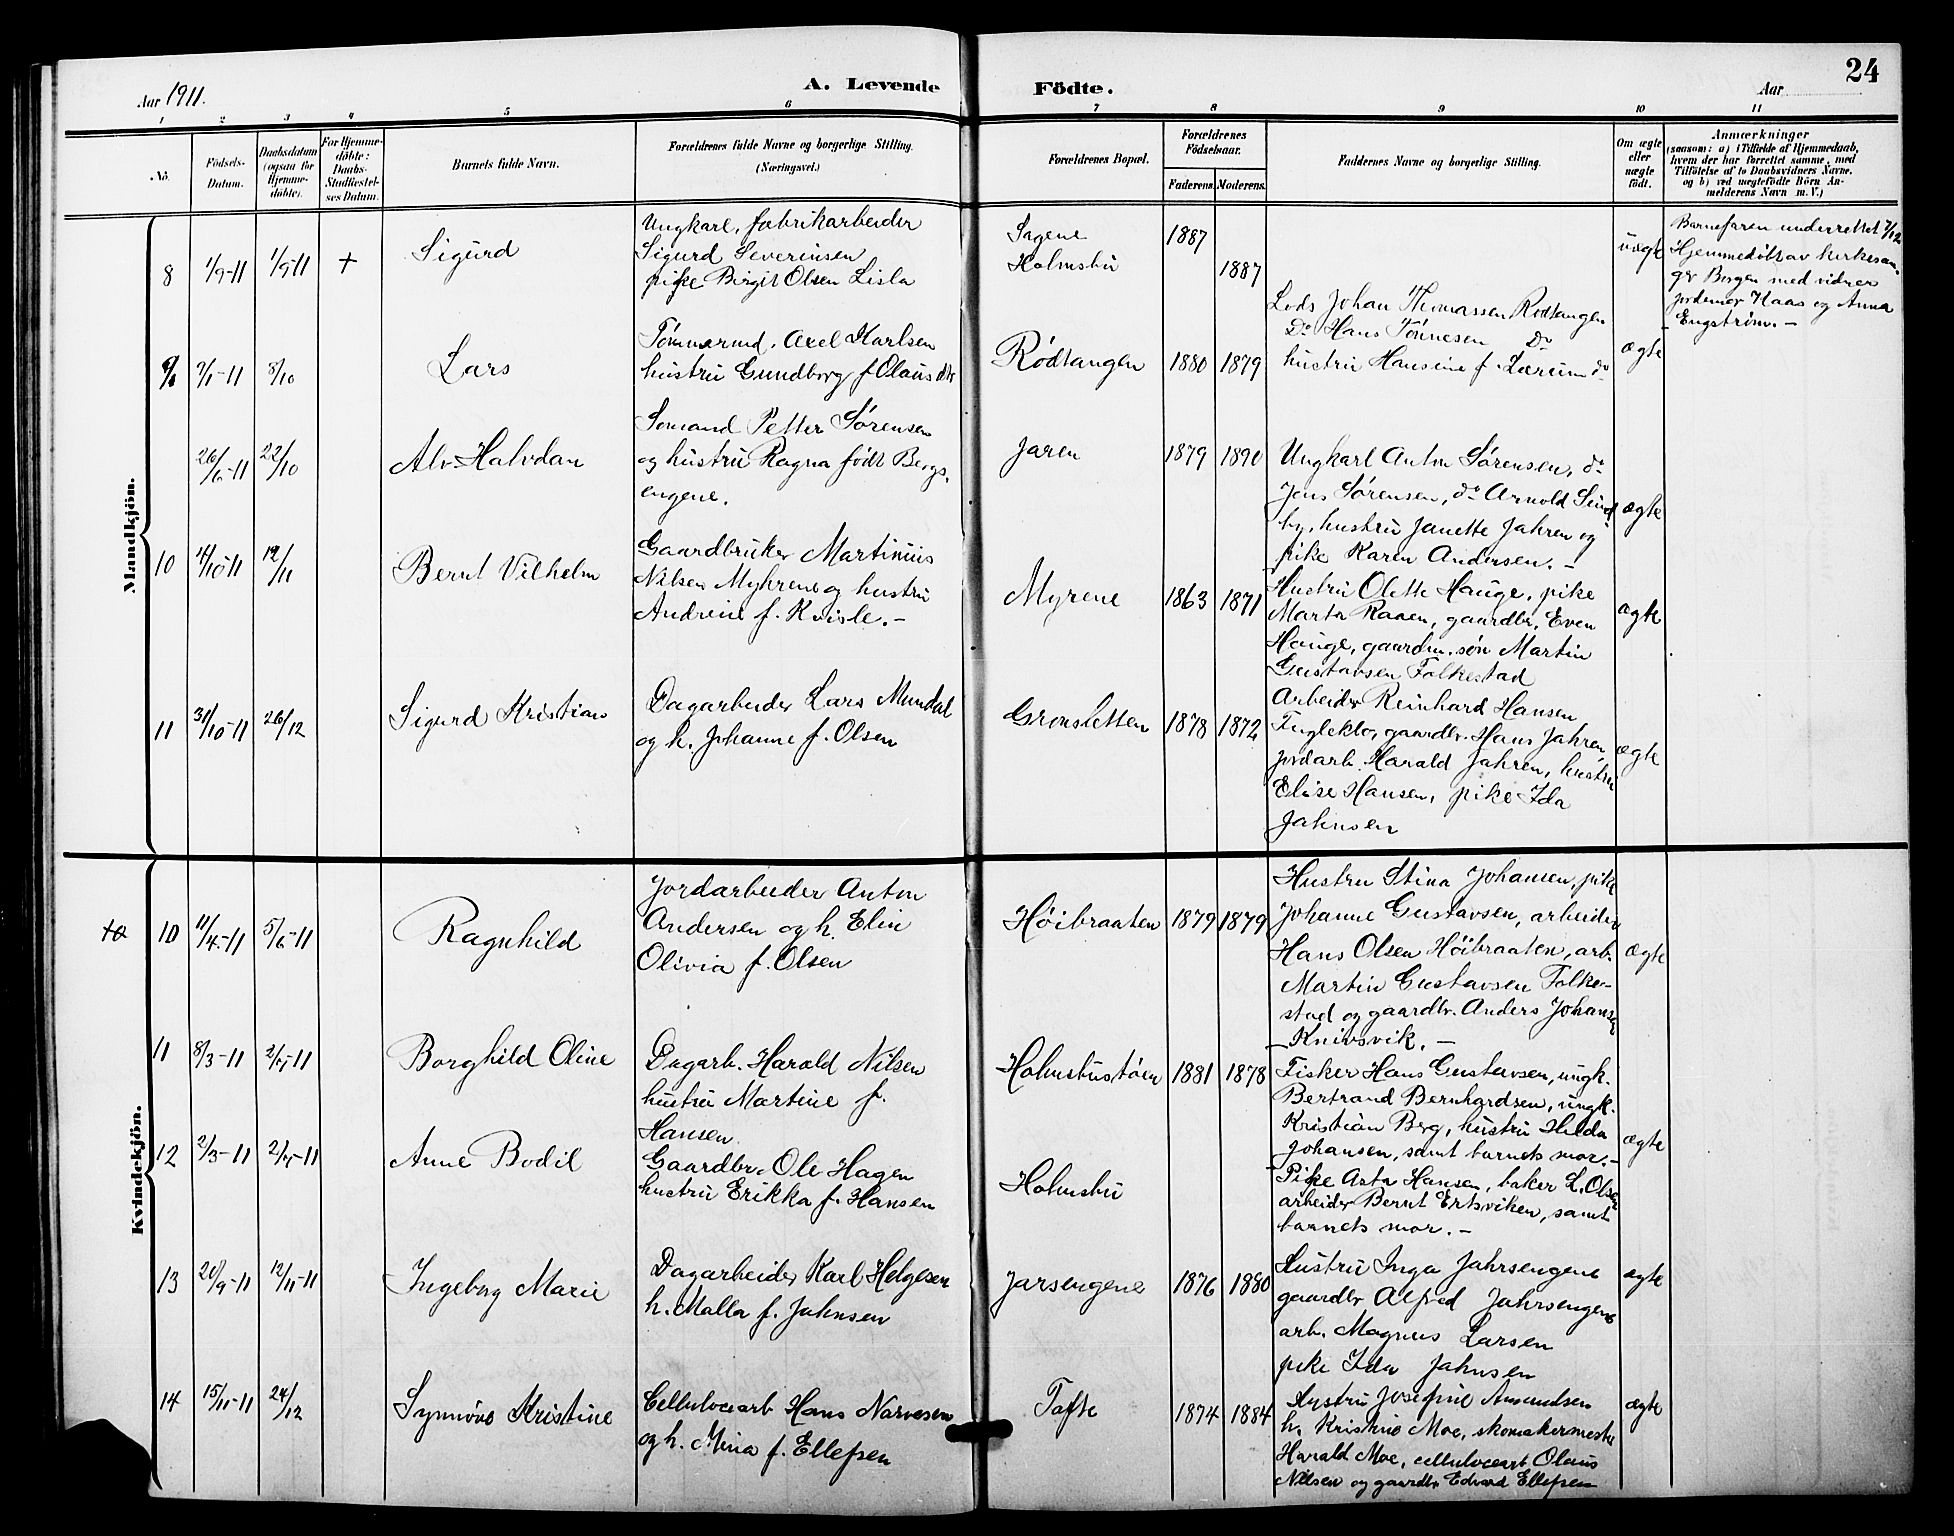 24
Aar 1911.
A. Levende
Födte.
Aar
1 2 3 4 5 6 7 8 9 10 11
No.
Födsels-
Datum.
Daabsdatum
(ogsaa for
Hjemme-
döbte).
For Hjemme-
döbte:
Daabs-
Stadfæstel-
ses Datum.
Barnets fulde Navn.
Forældrenes fulde Navne og borgerlige Stilling.
(Næringsvei.)
Forældrenes Bopæl.
Forældrenes
Födselsaar.
Faderens.
Moderens.
Faddernes Navne og borgerlige Stilling.
Om ægte
eller
uægte
födt.
Anmærkninger
(saasom: a) i Tilfælde af Hjemmedaab,
hvem der har forrettet samme, med
Tilföielse af to Daabsvidners Navne,
og b) ved uægtefödte Börn An-
melderens Navn m. V.)
Mandkjön.
8 1/9-11 1/9-11 +
Sigurd
Ungkarl, fabrikarbeider
Sigurd Severinsen
pike Birgit Olsen Lisla
Sagene
Holmsbu
1887
1887
uægte
Barnefaren underrettet
Hjemmedøbt av kirkesan-
ger Bergen med vidner
jordemor Haas og Anna
Engstrøm. -
8/10
Lars
Tømmermd. Axel Karlsen
hustru Gundborg f. Olausdtr
Rødtangen
1880 1879
Lods Johan Thomassen Rødtangen
Do Hans Tønnesen Do
hustru Hansine f. Lærum do
ægte
26/6-11 22/10
Alv Halvdan
Sømand Petter Sørensen
og hustru Ragna født Bergs-
engene.
Jaren
1879 1890
Ungkarl Anton Sørensen, do
Jens Sørensen, do Arnold Sund
by, hustru Janette Jahren og
pike Karen Andersen. -
ægte
10 4/10-11 12/11
Bernt Vilhelm
Gaardbruker Martinius
Nilsen Myhrene og hustru
Andrine f. Kvisle. -
Myrene
1863 1871
Hustru Olette Hauge, pike
Marta Raaen, gaardbr. Even
Hauge, gaardm. søn Martin
Gustavsen Folkestad
ægte
11 31/10-11 26/12
Sigurd Kristian
Dagarbeider Lars Mundal
og h. Johanne f. Olsen
Gronsletten
1878 1872
Arbeider Reinhard Hansen
Fugleklo, gaardbr. Hans Jahren
jordarb. Harald Jahren, hustru
Elise Hansen, pike Ida
Jahnsen
ægte
Kvindekjön.
10 11/4-11 5/6-11
Ragnhild
Jordarbeider Anton
Andersen og h. Elin
Olivia f. Olsen
Høibraaten
1879 1879
Hustru Stina Johansen, pike
Johanne Gustavsen, arbeider
Hans Olsen Høibraaten, arb.
Martin Gustavsen Folke-
stad og gaardbr. Anders Johansen
Knivsvik. -
ægte
11 8/3-11 2/7-11
Borghild Oline
Dagarb. Harald Nilsen
hustru Martine f.
Hansen
Holmsbustøen
1881 1878
Fisker Hans Gustavsen, ungk.
Bertrand Bernhardsen, ungk.
Kristian Berg, hustru Hilda
Johansen, samt barnets mor. -
ægte
12 2/3-11 2/7-11
Anne Bodil
Gaardbr. Ole Hagen
hustru Erikka f. Hansen
Holmsbu
Pike Asta Hansen, baker L. Olsen
arbeider Bernt Ertsviken, samt
barnets mor. -
13 20/9-11 12/11-11
Ingeborg Marie
Dagarbeider Karl Helgesen
h. Malla f. Jahnsen
Jarsengene
1876 1880
Hustru Inga Jahrsengene
gaardbr Alfred Jahrsengene
arb. Magnus Larsen
pike Ida Jahnsen
ægte
14 15/11-11 24/12
Synnøve Kristine
Cellulosearb Hans Narvesen
og h. Mina f. Ellefsen
Tofte
1874 1884
Hustru Josefine Amundsen
h. Kristine Moe, skomakermester
Harald Moe, cellulosearb. Olaus
Nilsen og gaardbr. Edvard Ellefsen
ægte